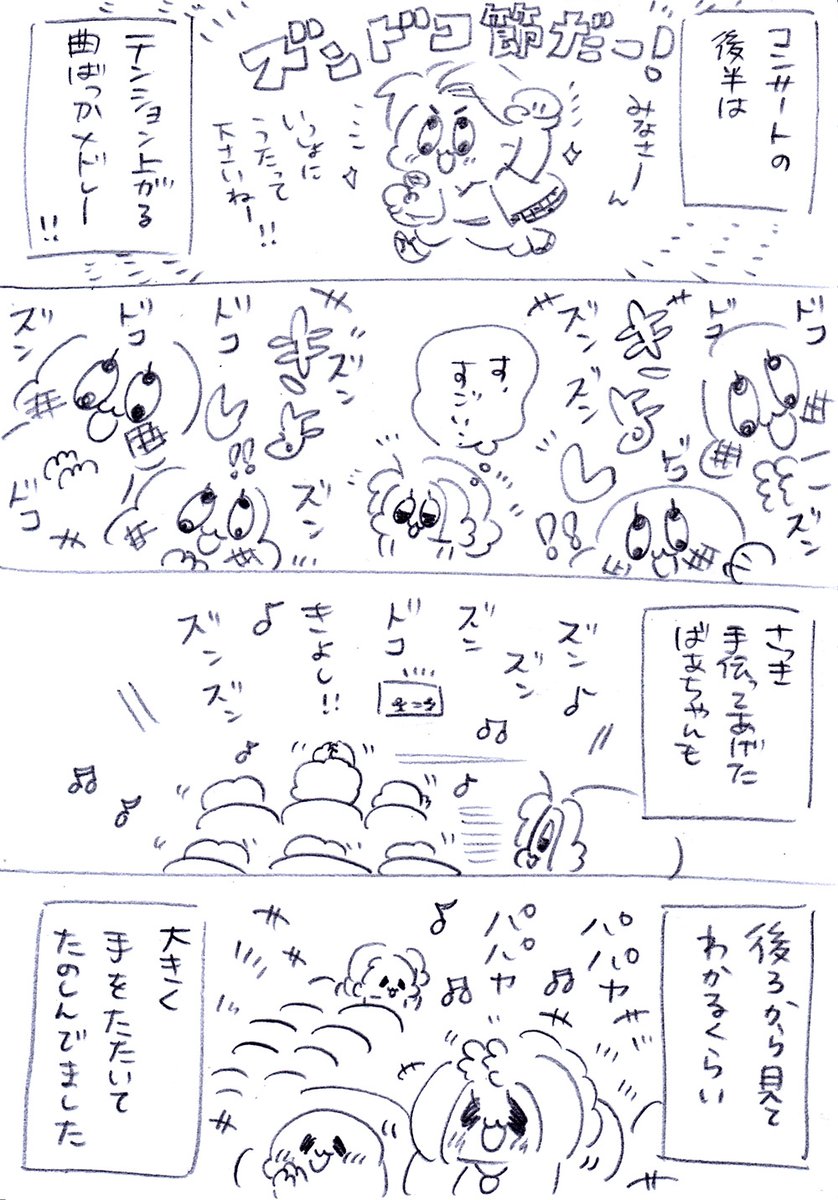 コンサートの
後半は
ズンドコ節だーっ!
みなさーん
いっしょに
うたって
下さいねー!!
テンション上がる
曲ばっかメドレー
!!
ドコ
ズン
ドコ
ズン
ズン
ドコ
き・よ・し!!
す、
すごい…
き・よ・し!!
ズン
ズン
ドコ
ドコ
ズン
ドコ
さっき
手伝ってあげた
ばあちゃんも
ズン
ズン
ズン
ドコ
きよし!!
ズン
ズン
後ろから見て
わかるくらい
パパヤ
パパヤ
大きく
手をたたいて
たのしんでました